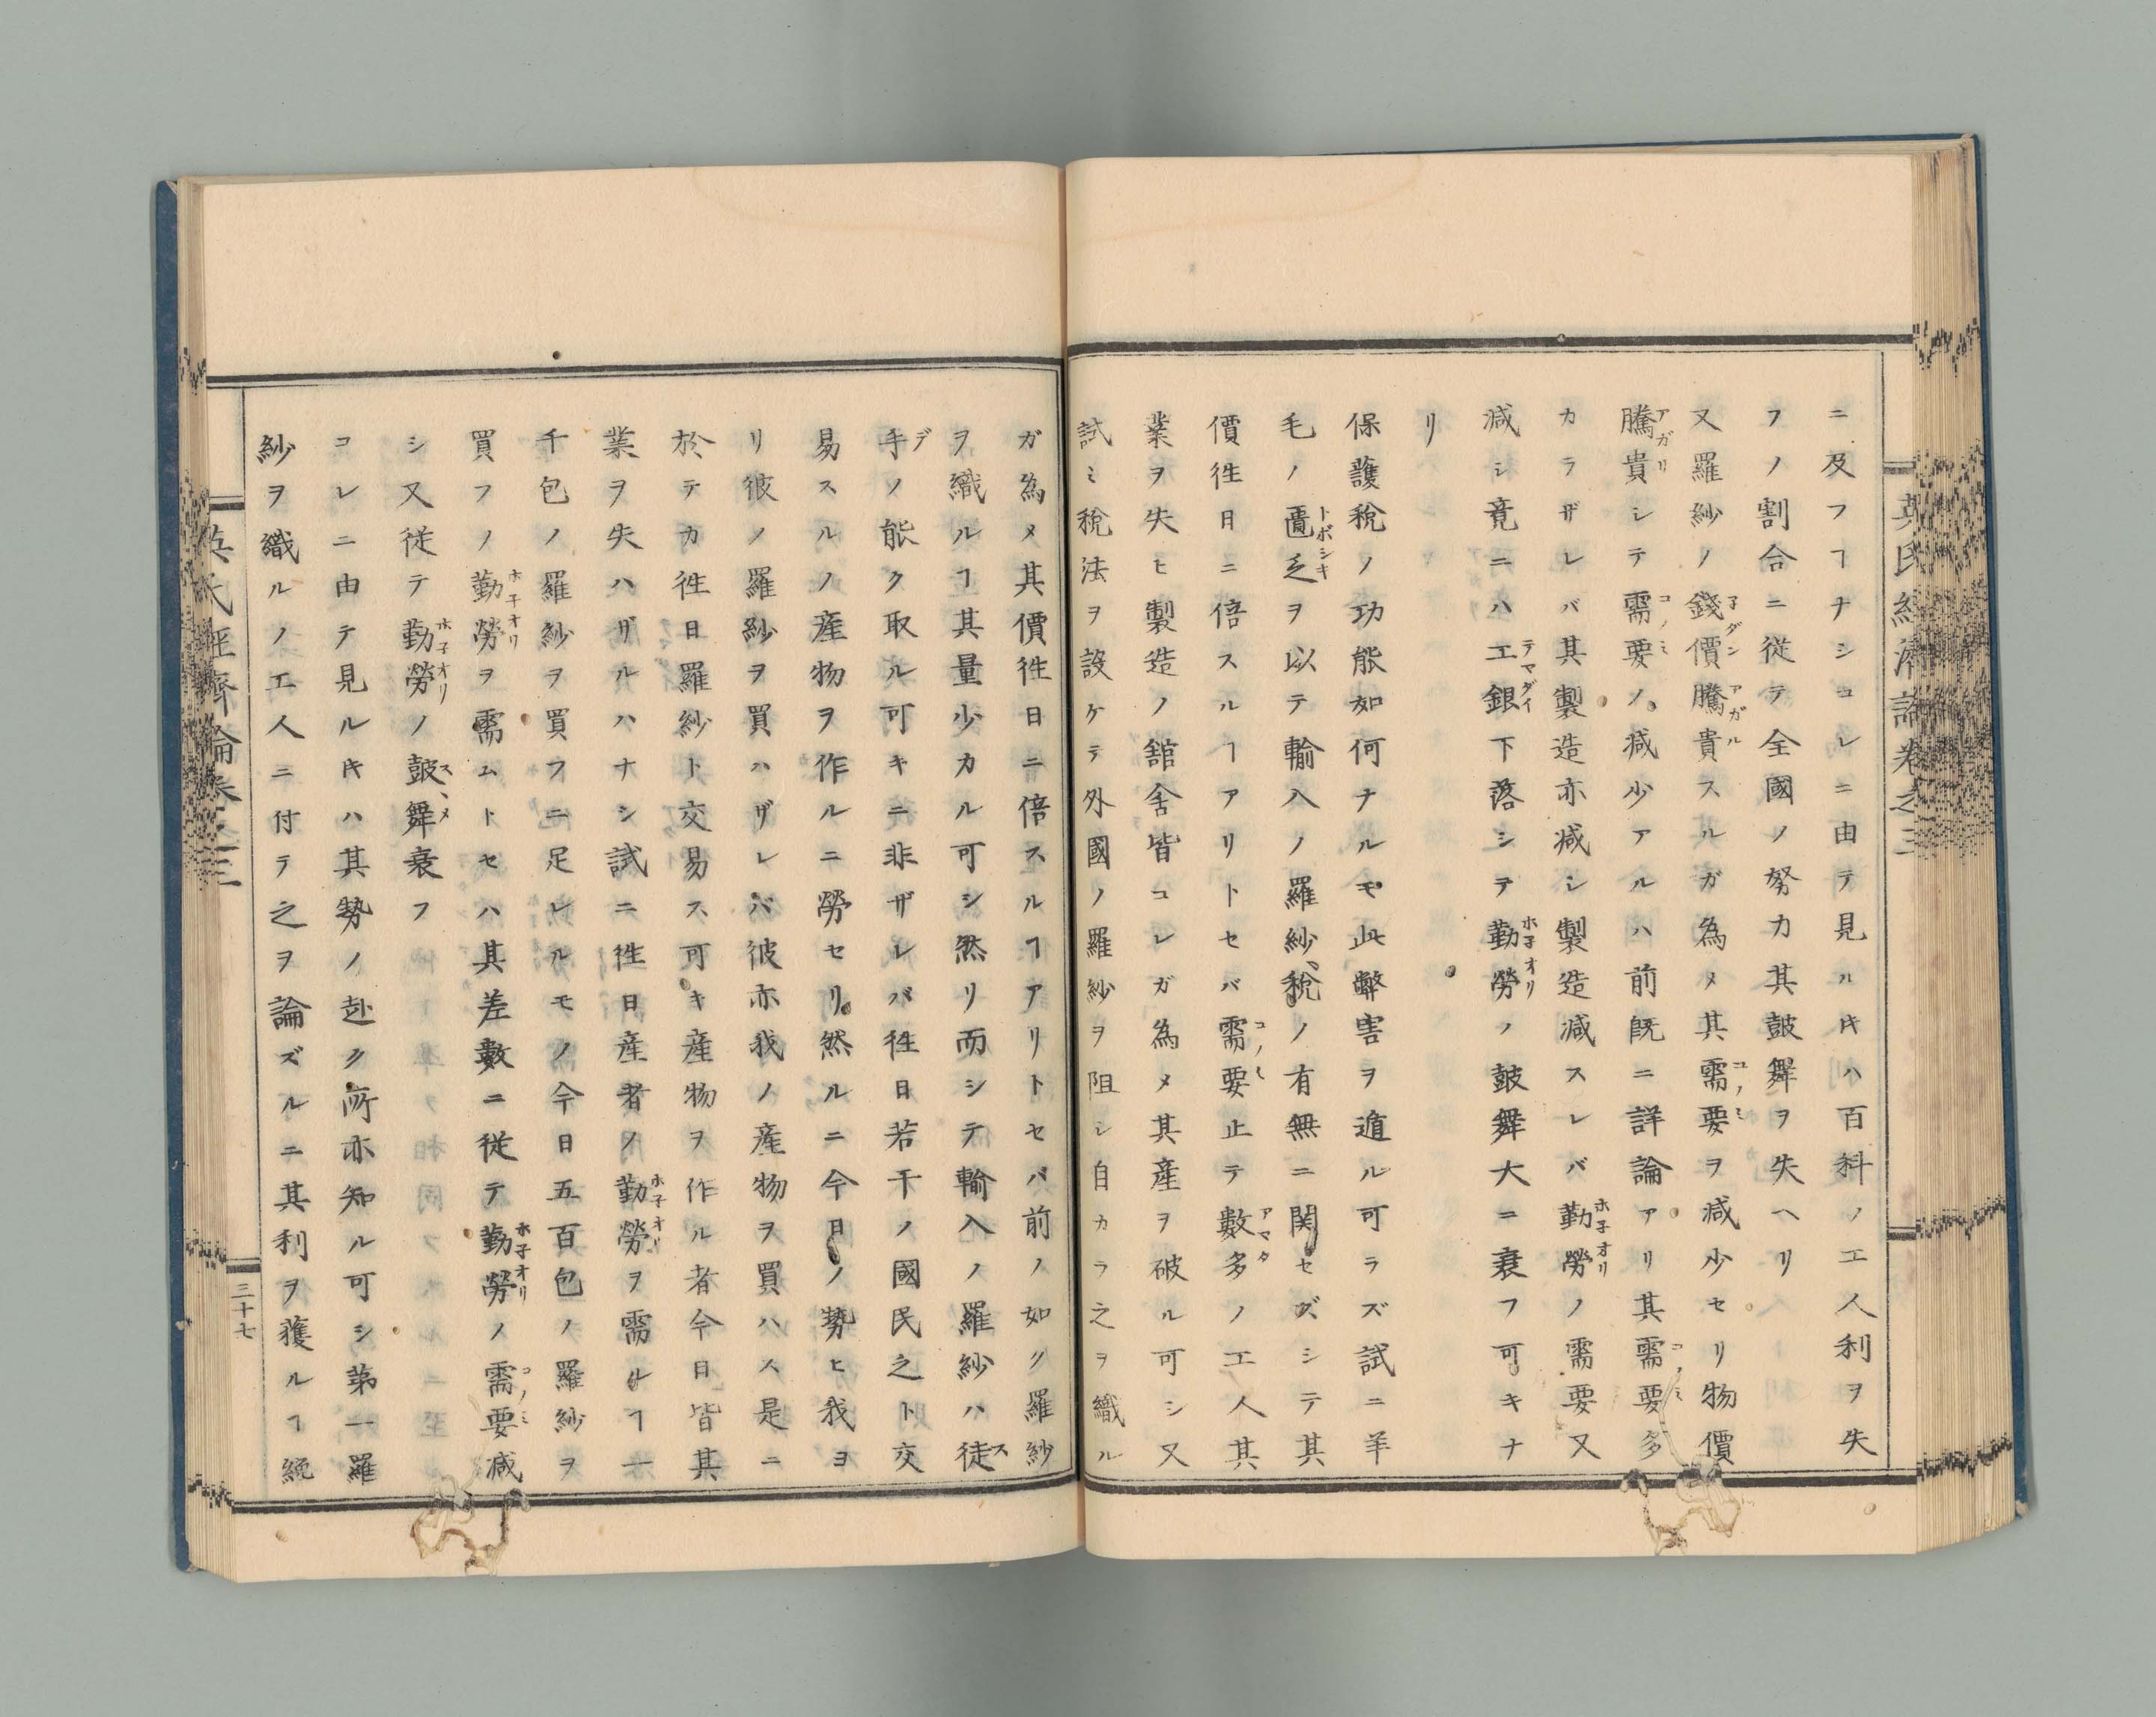 ニ及フヿナシコレニ由テ見ルキハ百科ノ工人利ヲ失
フノ割合ニ従テ全國ノ努力其鼓舞ヲ失ヘリ
又羅紗ノ錢價騰貴スルガ為メ其需要ヲ減少セリ物價
騰貴シテ需要ノ減少アルハ前既ニ詳論アリ其需要多
カラザレバ其製造亦減シ製造減スレバ勤勞ノ需要又
減シ竟ニハ工銀下落シテ勤勞ノ鼓舞大ニ衰フ可キナ
リ
保護稅ノ功能如何ナルモ此弊害ヲ遁ル可ラズ試ニ羊
毛ノ匱乏ヲ以テ輸入ノ羅紗稅ノ有無ニ関セズシテ其
價徃日ニ倍スルヿアリトセバ需要止テ數多ノ工人其
業ヲ失ヒ製造ノ舘舍皆コレガ為メ其産ヲ破ル可シ又
試ミ稅法ヲ設ケテ外國ノ羅紗ヲ阻シ自カラ之ヲ織ル
ガ為メ其價徃日ニ倍スルヿアリトセバ前ノ如ク羅紗
ヲ織ルヿ其量少カル可シ然リ而シテ輸入ノ羅紗ハ徒
手ノ能ク取ル可キニ非ザレバ徃日若干ノ國民之ト交
易スルノ産物ヲ作ルニ勞セリ然ルニ今日ノ勢ヒ我ヨ
リ彼ノ羅紗ヲ買ハザレバ彼亦我ノ産物ヲ買ハス是ニ
於テカ徃日羅紗ト交易ス可キ産物ヲ作ル者今日皆其
業ヲ失ハザルハナシ試ニ徃日産者ノ勤勞ヲ需ルヿ一
千包ノ羅紗ヲ買フニ足レルモノ今日五百包ノ羅紗ヲ
買フノ勤勞ヲ需ムトセハ其差數ニ従テ勤勞ノ需要減
シ又従テ勤勞ノ鼓舞衰フ
コレニ由テ見ルキハ其勢ノ赴ク所亦知ル可シ第一羅
紗ヲ織ルノ工人ニ付テ之ヲ論ズルニ其利ヲ獲ルヿ絶
英氏經濟論卷之三
三十七